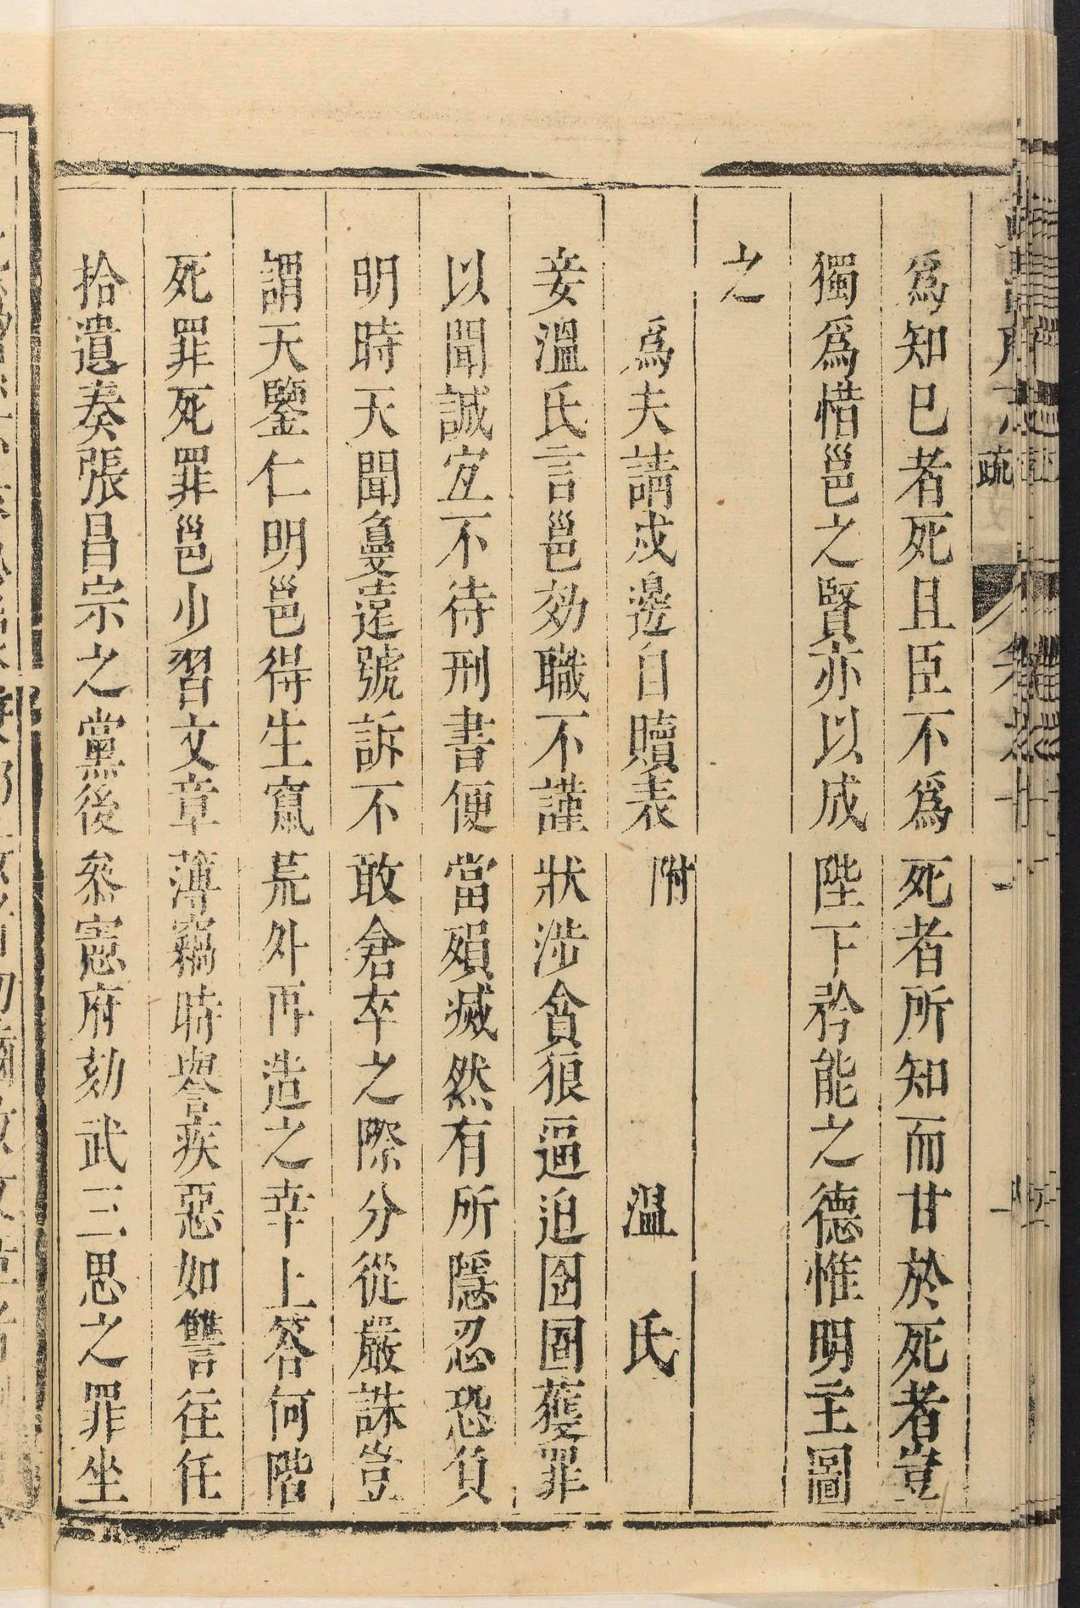 爲知已者死且臣不爲死者所知而甘於死者豈
獨爲惜邕之賢亦以成陛下矜能之德惟明主圖
之
爲夫請戍邊自贖表 附 溫氏
妾溫氏言邕効職不謹狀涉貪狼逼迫囹圄獲罪
以聞誠宜不待刑書便當殞滅然有所隱忍恐負
明時天聞敻遠號訴不敢倉卒之際分從嚴誅豈
謂天鑒仁明邕得生竄荒外再造之幸上荅何階
死罪死罪邕少習文章薄竊時譽疾惡如讐往任
拾遺奏張昌宗之黨後叅憲府劾武三思之罪坐